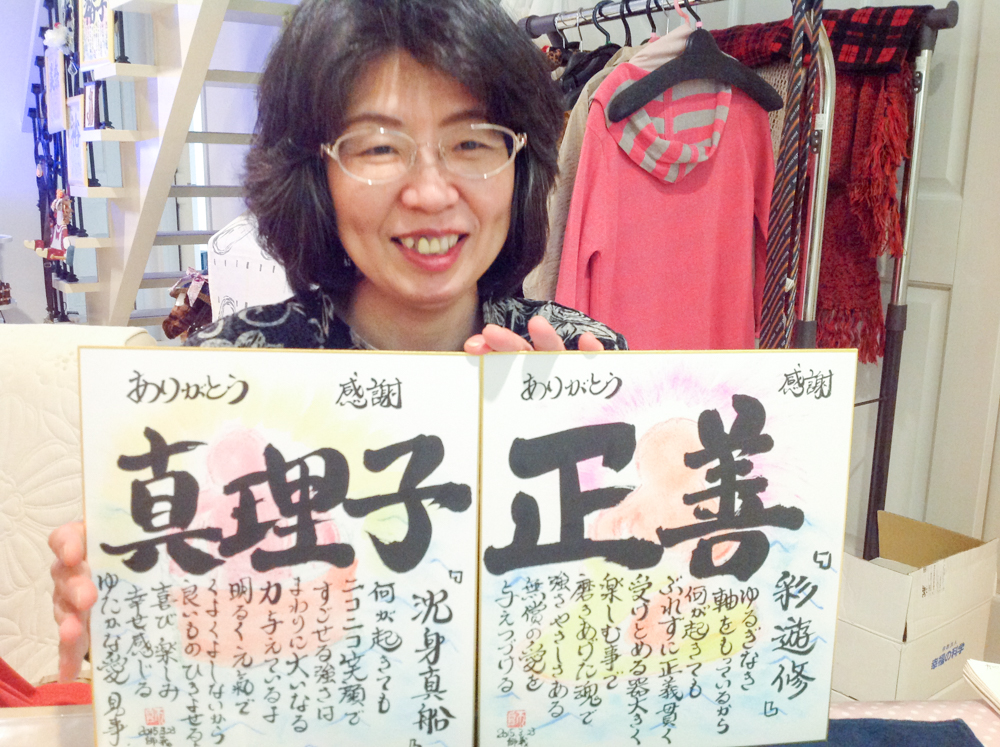 ありがとう
感謝
真理子
『沈身真船』
何が起きても
ニコニコ笑顔で
すごせる強さは
まわりに大いなる
力与えているよ
明るく元気で
くよくよしないから
良いものひきよせる
喜び楽しみ
幸せ感じる
ゆたかな愛 見事
ありがとう
感謝
正善
『彩遊修』
ゆるぎなき
軸をもっているから
何が起きても
ぶれずに正義貫く
受けとめる器大きく
楽しむ事で
磨きあげた魂で
強さやさしさある
無償の愛を
与えつづける
幸福の科学